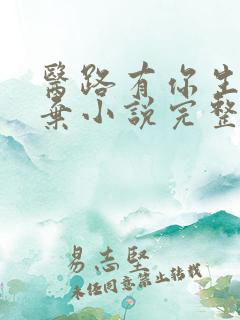 醫路有你生
棄小說完整
易志堅
未經同意禁止轉載